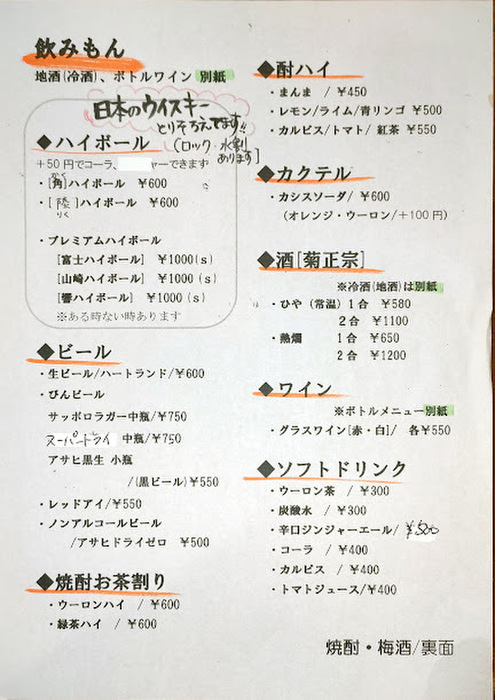 飲みもん
地酒(冷酒)、ボトルワイン 別紙
日本のウイスキー
とりそろえてます!!
(ロック・水割
あります]
◆ハイボール
+50円でコーラ、ャーできます
かく
・[角]ハイボール ¥600
・[陸]ハイボール ¥600
りく
・プレミアムハイボール
[富士ハイボール] ¥1000(s)
[山崎ハイボール] ¥1000(s)
[響ハイボール] ¥1000(s)
※ある時ない時あります
◆ビール
・生ビール/ハートランド/¥600
・びんビール
サッポロラガー中瓶/¥750
スーパードライ 中瓶/¥750
アサヒ黒生 小瓶
/(黒ビール)¥550
・レッドアイ/¥550
・ノンアルコールビール
/アサヒドライゼロ ¥500
◆焼酎お茶割り
・ウーロンハイ / ¥600
・緑茶ハイ / ¥600
◆酎ハイ
・まんま / ¥450
・レモン/ライム/青リンゴ ¥500
・カルピス/トマト/ 紅茶 ¥550
◆カクテル
・カシスソーダ/ ¥600
(オレンジ・ウーロン/+100円)
◆酒[菊正宗]
※冷酒(地酒)は別紙
・ひや(常温)1合 ¥580
2合 ¥1100
・熱燗 1合 ¥650
2合 ¥1200
◆ワイン
※ボトルメニュー別紙
・グラスワイン[赤・白]/ 各¥550
◆ソフトドリンク
・ウーロン茶 / ¥300
・炭酸水 / ¥300
・辛口ジンジャーエール/ ¥500
・コーラ / ¥400
・カルピス / ¥400
・トマトジュース/¥400
焼酎・梅酒/裏面